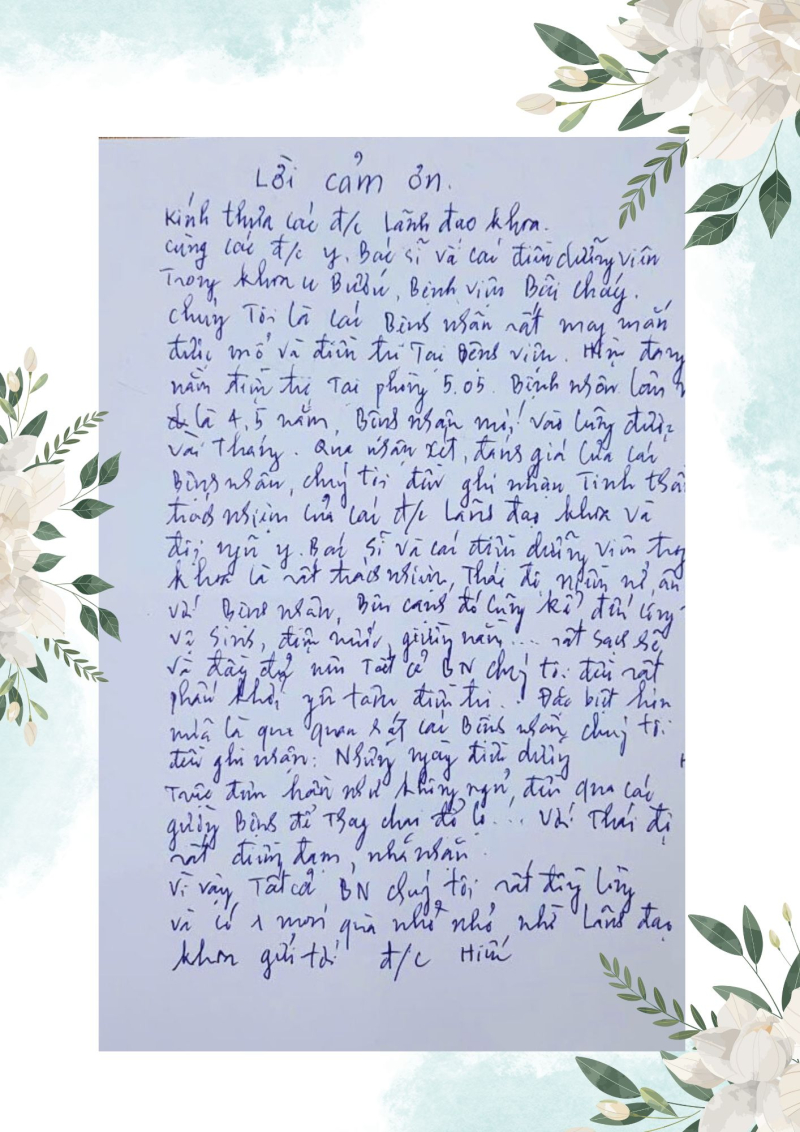 Lời cảm ơn.
Kính thưa các đ/c Lãnh đạo khoa.
Cùng các đ/c y. Bác sĩ và các điều dưỡng viên
Trong khoa u Bướu, Bệnh viện Bãi cháy.
Chúng Tôi là các Bệnh nhân rất may mắn
được mổ và điều trị Tại Bệnh viện. Hiện đang
nằm điều trị Tại phòng 5.05. Bệnh nhân lâu
là 4,5 năm, Bệnh nhân mới vào cũng được
vài Tháng. Qua nhận xét, đánh giá của các
Bệnh nhân, chúng tôi đều ghi nhận Tinh thần
trách nhiệm của các đ/c Lãnh đạo khoa và
đội ngũ y. Bác sĩ và các điều dưỡng viên trong
khoa là rất trách nhiệm, Thái độ niềm nở, ân
với Bệnh nhân, Bên cạnh đó cũng kể đến công
vệ sinh, điện nước, giường nằm... rất sạch sẽ
và đầy đủ nên Tất cả BN chúng tôi đều rất
phấn khởi yên tâm điều trị. Đặc biệt hơn
nữa là qua quan sát các Bệnh nhân, chúng tôi
đều ghi nhận: Những ngày điều dưỡng
Trực đêm hầu như không ngủ, đến qua các
giường Bệnh để Thay chai đổ lọ... Với Thái độ
rất điềm đạm, nhã nhặn.
Vì vậy Tất cả BN chúng tôi rất động lòng
và có 1 món quà nhỏ nhỏ nhờ Lãnh đạo
khoa gửi tới đ/c Hiếu